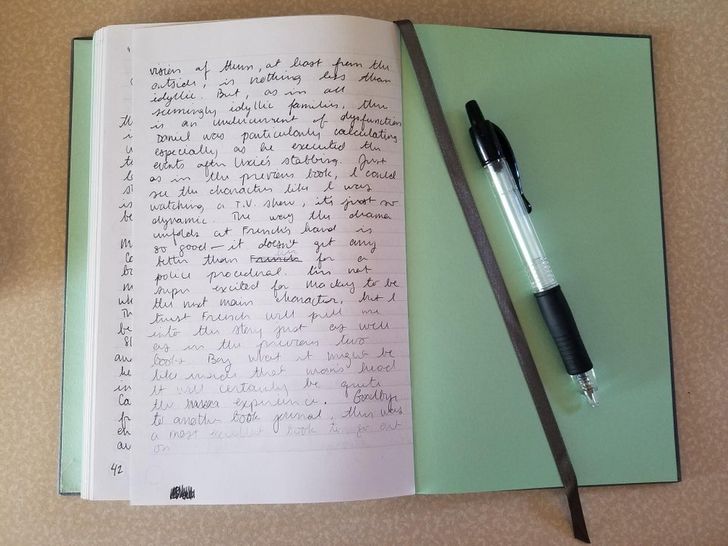 vision of them, at least from the
outside, is nothing less than
idyllic. But, as in all
seemingly idyllic families, there
is an undercurrent of dysfunction
Daniel was particularly calculating
especially as he executed the
events after Lexie's stabbing. Just
as in the previous book, I could
see the characters like I was
watching a T.V. show, it's just so
dynamic. The way the drama
unfolds at French's hand is
so good — it doesn't get any
better than French for a
police procedural. I'm not
super excited for Mackey to be
the next main character, but I
trust French will pull me
into the story just as well
as in the previous two
books. Boy what it might be
like inside that man's head
It will certainly be quite
the experience. Goodbye
to another book journal, this was
a most excellent book to go out
on
42